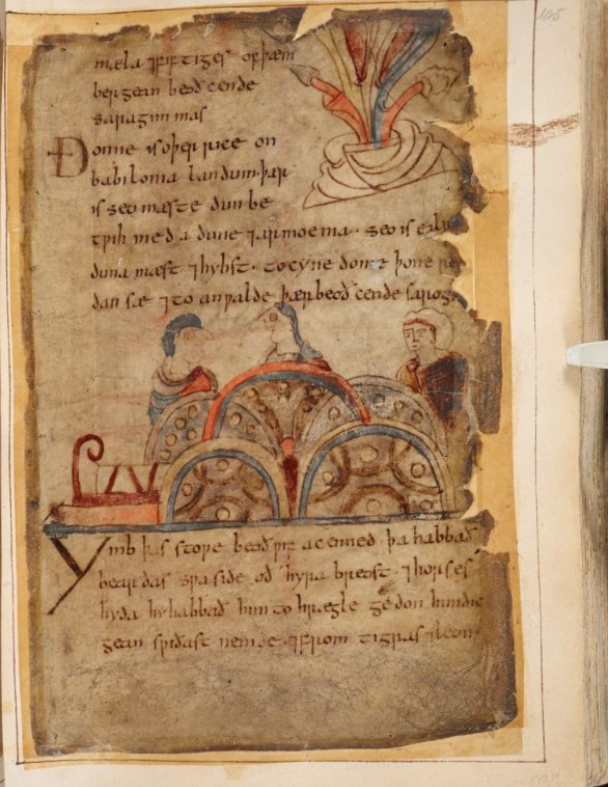 105
mæla ⁊ fiftiges of þæm
bergean beoð cende
saragimmas
Ðonne is oþer rice on
babilonia landum þær
is seo mæste dun be
tƿih meda dune ⁊ armoenia. seo is ealra
duna mæst ⁊ hyhst. to cyne dome þone
dan sæ ⁊ to anƿalde þær beoð cende
Ymb þas stoƿe beoð ƿif acenned þa habbað
beardas sƿa side oð hyra breost. ⁊ horses
hyda hy habbað him to hrægle gedon hundi
gean sƿiðast ⁊ from tigras ⁊ leon